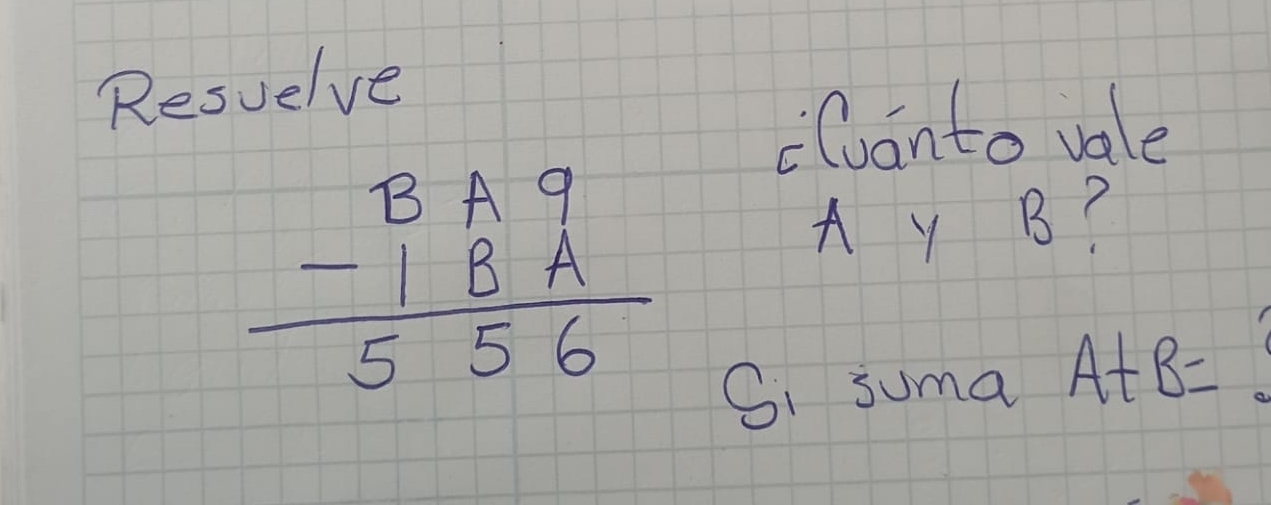 Resuelve
B A 9
- 1 B A
5 5 6
¿Cuánto vale
A y B?
Si suma A+B= ?